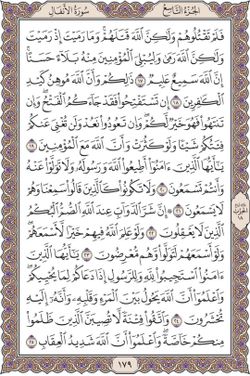 سُورَةُ الأَنفَالِ
الجُزْءُ التَّاسِعُ
فَلَمْ تَقْتُلُوهُمْ وَلَٰكِنَّ ٱللَّهَ قَتَلَهُمْ وَمَا رَمَيْتَ إِذْ رَمَيْتَ
وَلَٰكِنَّ ٱللَّهَ رَمَىٰ وَلِيُبْلِيَ ٱلْمُؤْمِنِينَ مِنْهُ بَلَآءً حَسَنًا
إِنَّ ٱللَّهَ سَمِيعٌ عَلِيمٌ ١٧ ذَٰلِكُمْ وَأَنَّ ٱللَّهَ مُوهِنُ كَيْدِ
ٱلْكَٰفِرِينَ ١٨ إِن تَسْتَفْتِحُوا۟ فَقَدْ جَآءَكُمُ ٱلْفَتْحُ وَإِن
تَنتَهُوا۟ فَهُوَ خَيْرٌ لَّكُمْ وَإِن تَعُودُوا۟ نَعُدْ وَلَن تُغْنِيَ عَنكُمْ
فِئَتُكُمْ شَيْـًٔا وَلَوْ كَثُرَتْ وَأَنَّ ٱللَّهَ مَعَ ٱلْمُؤْمِنِينَ ١٩
يَٰٓأَيُّهَا ٱلَّذِينَ ءَامَنُوٓا۟ أَطِيعُوا۟ ٱللَّهَ وَرَسُولَهُۥ وَلَا تَوَلَّوْا۟ عَنْهُ
وَأَنتُمْ تَسْمَعُونَ ٢٠ وَلَا تَكُونُوا۟ كَٱلَّذِينَ قَالُوا۟ سَمِعْنَا وَهُمْ
لَا يَسْمَعُونَ ٢١ إِنَّ شَرَّ ٱلدَّوَآبِّ عِندَ ٱللَّهِ ٱلصُّمُّ ٱلْبُكْمُ
ٱلَّذِينَ لَا يَعْقِلُونَ ٢٢ وَلَوْ عَلِمَ ٱللَّهُ فِيهِمْ خَيْرًا لَّأَسْمَعَهُمْ
وَلَوْ أَسْمَعَهُمْ لَتَوَلَّوا۟ وَّهُم مُّعْرِضُونَ ٢٣ يَٰٓأَيُّهَا ٱلَّذِينَ
ءَامَنُوا۟ ٱسْتَجِيبُوا۟ لِلَّهِ وَلِلرَّسُولِ إِذَا دَعَاكُمْ لِمَا يُحْيِيكُمْ
وَٱعْلَمُوٓا۟ أَنَّ ٱللَّهَ يَحُولُ بَيْنَ ٱلْمَرْءِ وَقَلْبِهِۦ وَأَنَّهُۥٓ إِلَيْهِ
تُحْشَرُونَ ٢٤ وَٱتَّقُوا۟ فِتْنَةً لَّا تُصِيبَنَّ ٱلَّذِينَ ظَلَمُوا۟
مِنكُمْ خَآصَّةً وَٱعْلَمُوٓا۟ أَنَّ ٱللَّهَ شَدِيدُ ٱلْعِقَابِ ٢٥
١٧٩